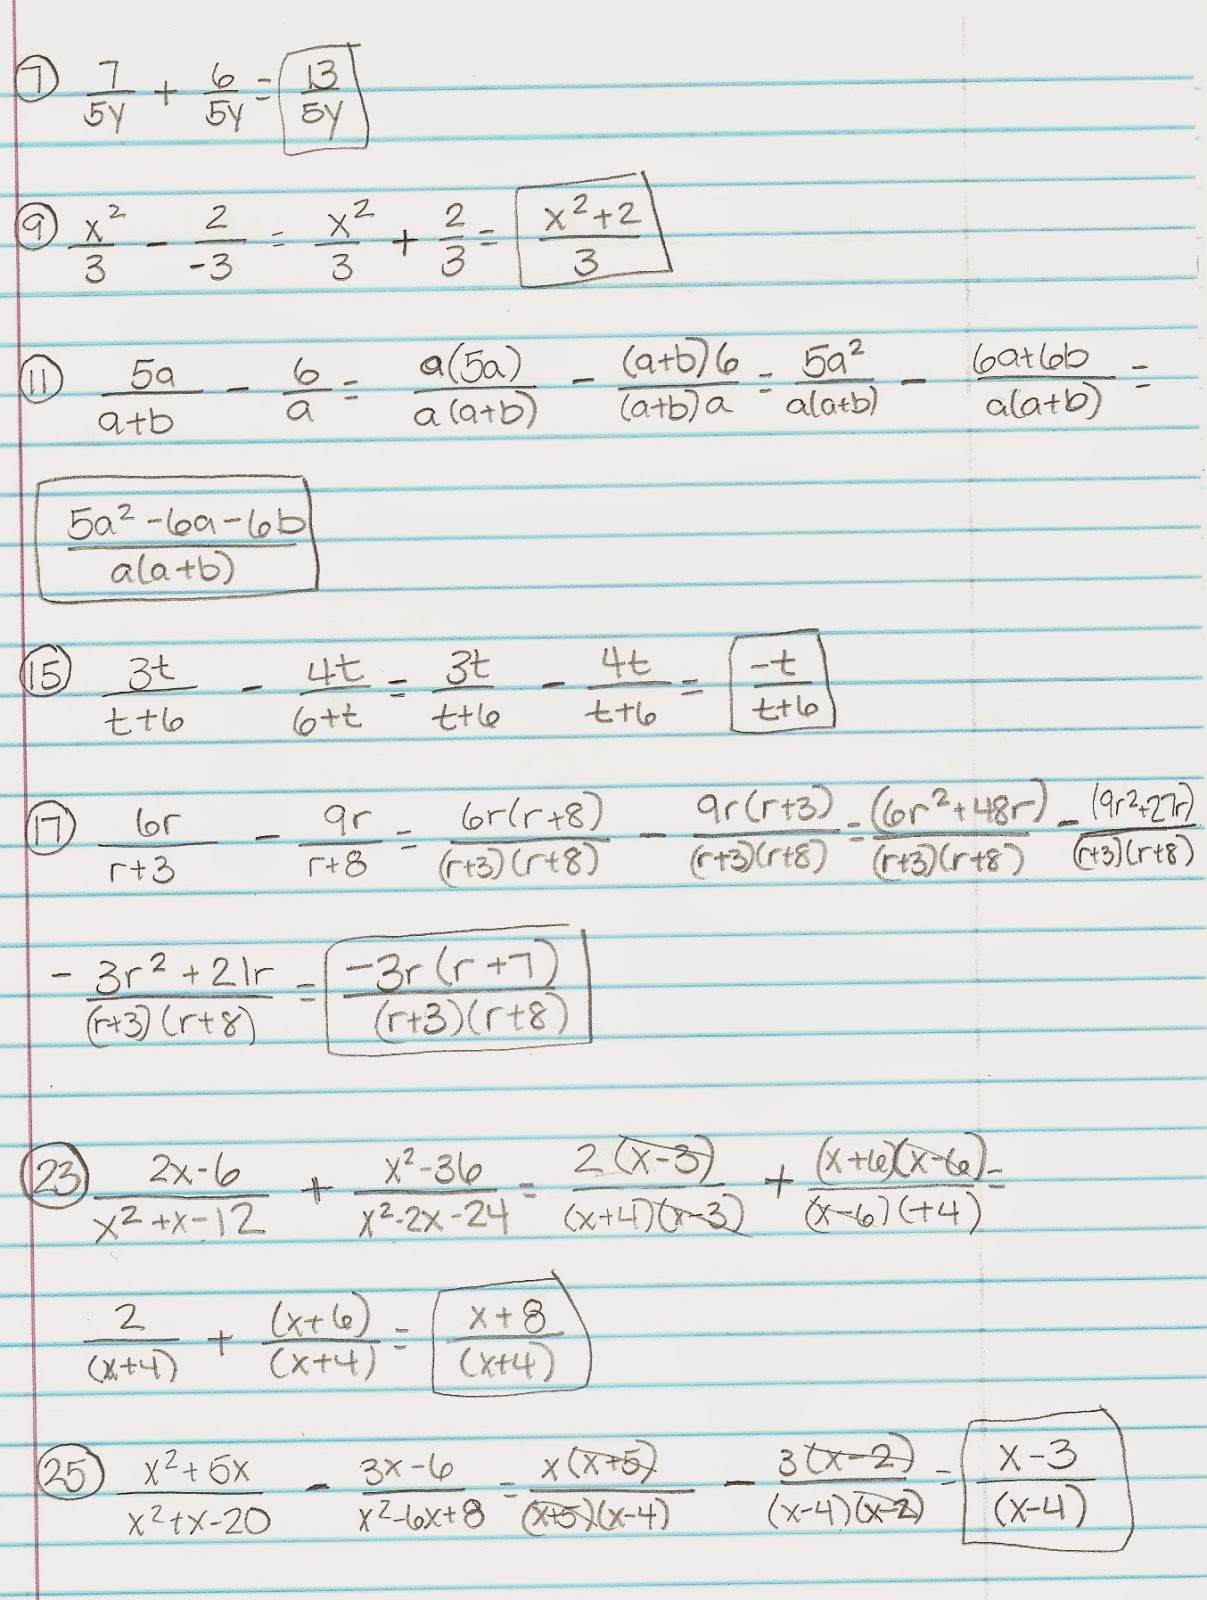 ⑦ 7/5y + 6/5y = 13/5y
⑨ x²/3 - 2/-3 = x²/3 + 2/3 = x²+2/3
⑪ 5a/a+b - 6/a = a(5a)/a(a+b) - (a+b)6/(a+b)a = 5a²/a(a+b) - 6a+6b/a(a+b) =
5a²-6a-6b/a(a+b)
⑮ 3t/t+6 - 4t/6+t = 3t/t+6 - 4t/t+6 = -t/t+6
⑰ 6r/r+3 - 9r/r+8 = 6r(r+8)/(r+3)(r+8) - 9r(r+3)/(r+3)(r+8) = (6r²+48r)/(r+3)(r+8) - (9r²+27r)/(r+3)(r+8)
- 3r²+21r/(r+3)(r+8) = -3r(r+7)/(r+3)(r+8)
㉓ 2x-6/x²+x-12 + x²-36/x²-2x-24 = 2(x-3)/(x+4)(x-3) + (x+6)(x-6)/(x-6)(+4) =
2/(x+4) + (x+6)/(x+4) = x+8/(x+4)
㉕ x²+5x/x²+x-20 - 3x-6/x²-6x+8 = x(x+5)/(x+5)(x-4) - 3(x-2)/(x-4)(x-2) = x-3/(x-4)